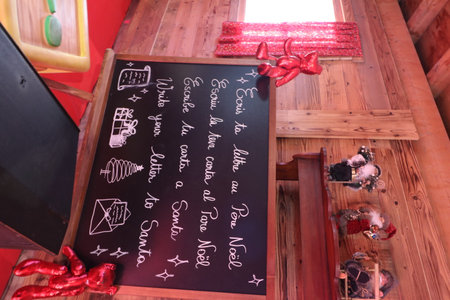 Écris ta lettre au Père Noël
Escriu la teva carta al Pare Noël
Escribe tu carta a Santa
Write your letter to Santa